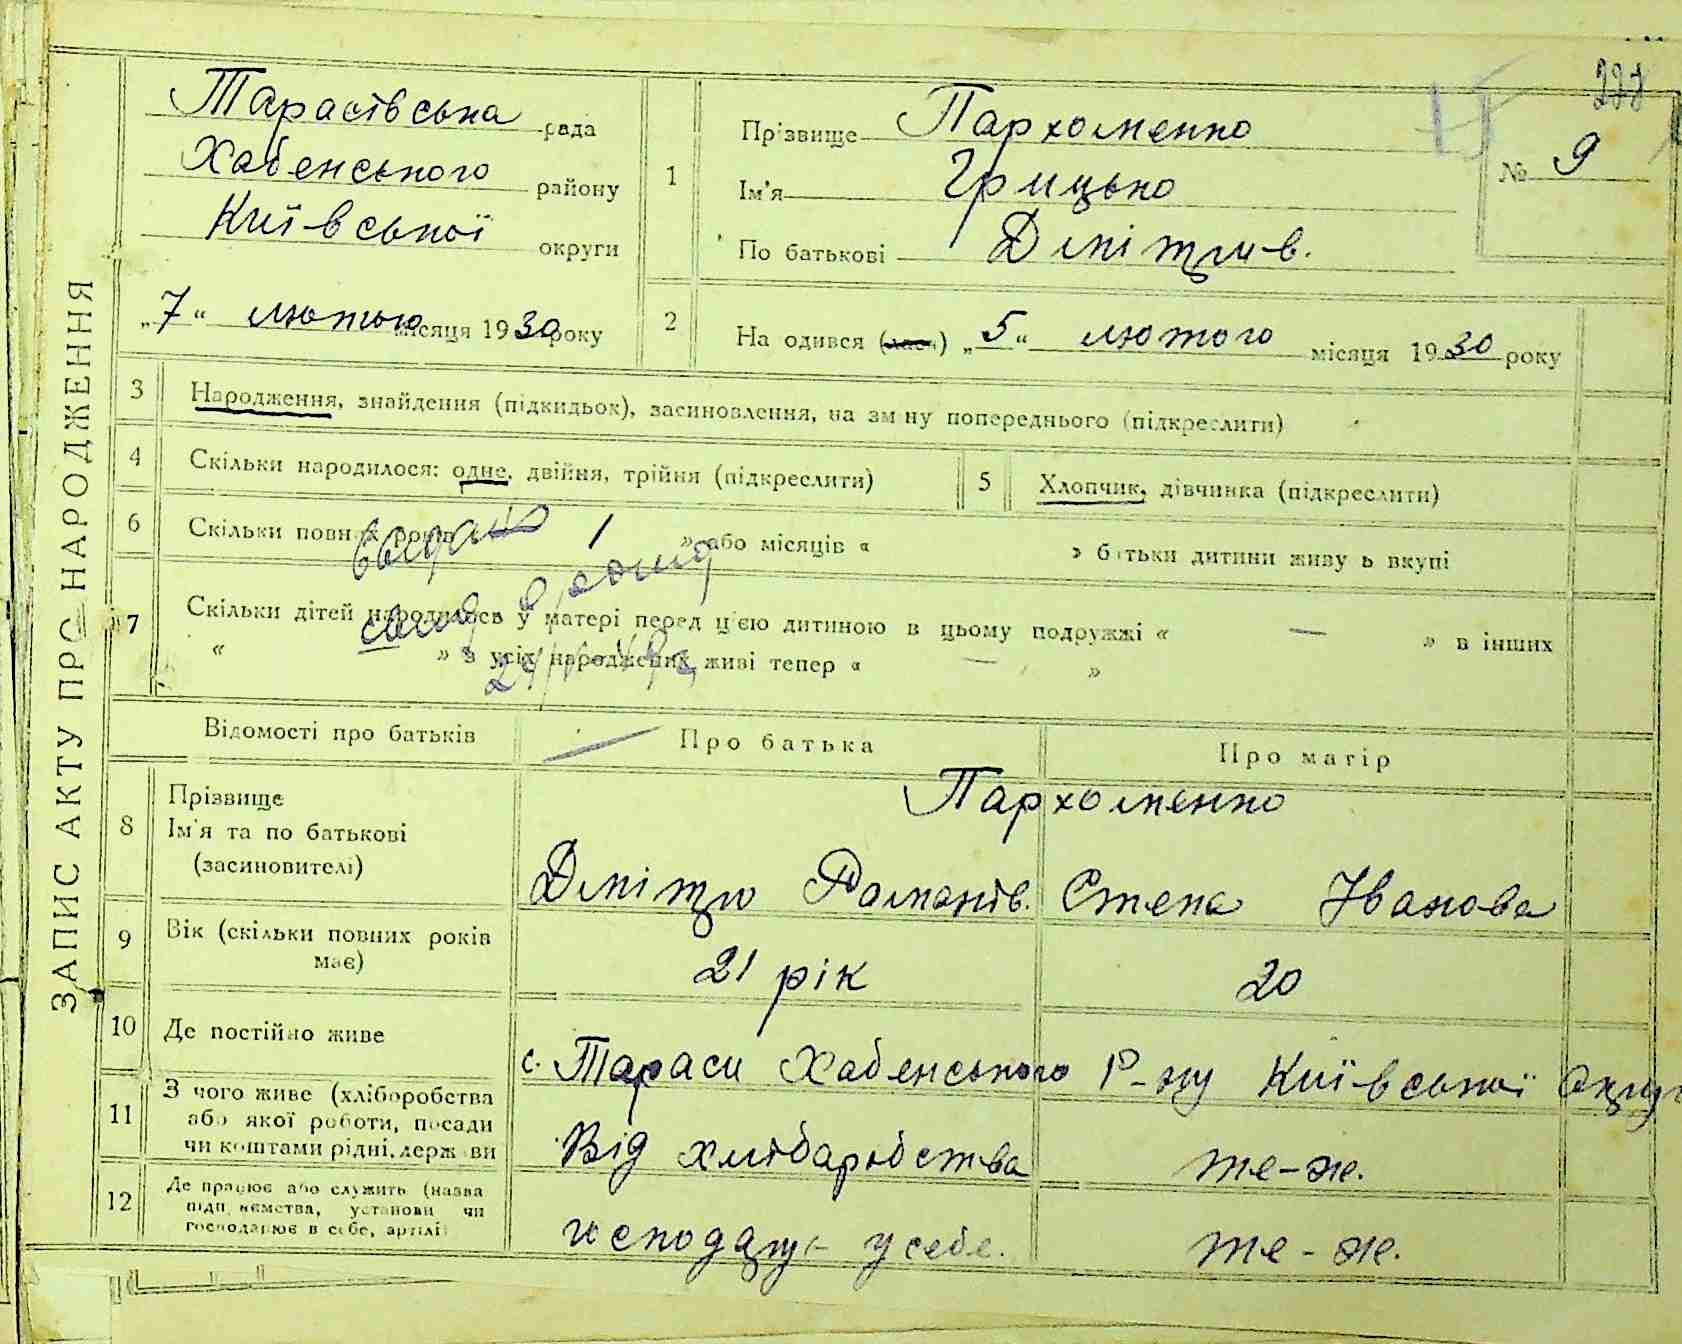 ЗАПИС АКТУ ПРО НАРОДЖЕННЯ
Тарасівська рада
Хабенського району
Київської округи
„7“ лютого місяця 1930 року
1
Прізвище Пархоменко
Ім'я Грицько
По батькові Дмітров.
№ 9
2
На одився „5“ лютого місяця 1930 року
3
Народження, знайдення (підкидьок), засиновлення, на зм ну попереднього (підкреслити)
4
Скільки народилося: одне, двійня, трійня (підкреслити)
5
Хлопчик, дівчинка (підкреслити)
6
Скільки повних років » або місяців « » батьки дитини живу ь вкупі
7
Скільки дітей народилось у матері перед ц'єю дитиною в цьому подружжі « — » в інших
« » з усіх народжених живі тепер « — »
Відомості про батьків
Про батька
Про матір
8
Прізвище
Ім'я та по батькові
(засиновителі)
Пархоменко
Дмітро Романів. Степа Іванова
9
Вік (скільки повних років
має)
21 рік
20
10
Де постійно живе
с. Тараси Хабенського Р-ну Київської Округ
11
З чого живе (хліборобства
або якої роботи, посади
чи коштами рідні, держ ави
Від хліборобства
те-ж.
12
Де працює або служить (назва
підп иємства, установи чи
господарює в себе, артілі
господарує у себе.
те-ж.